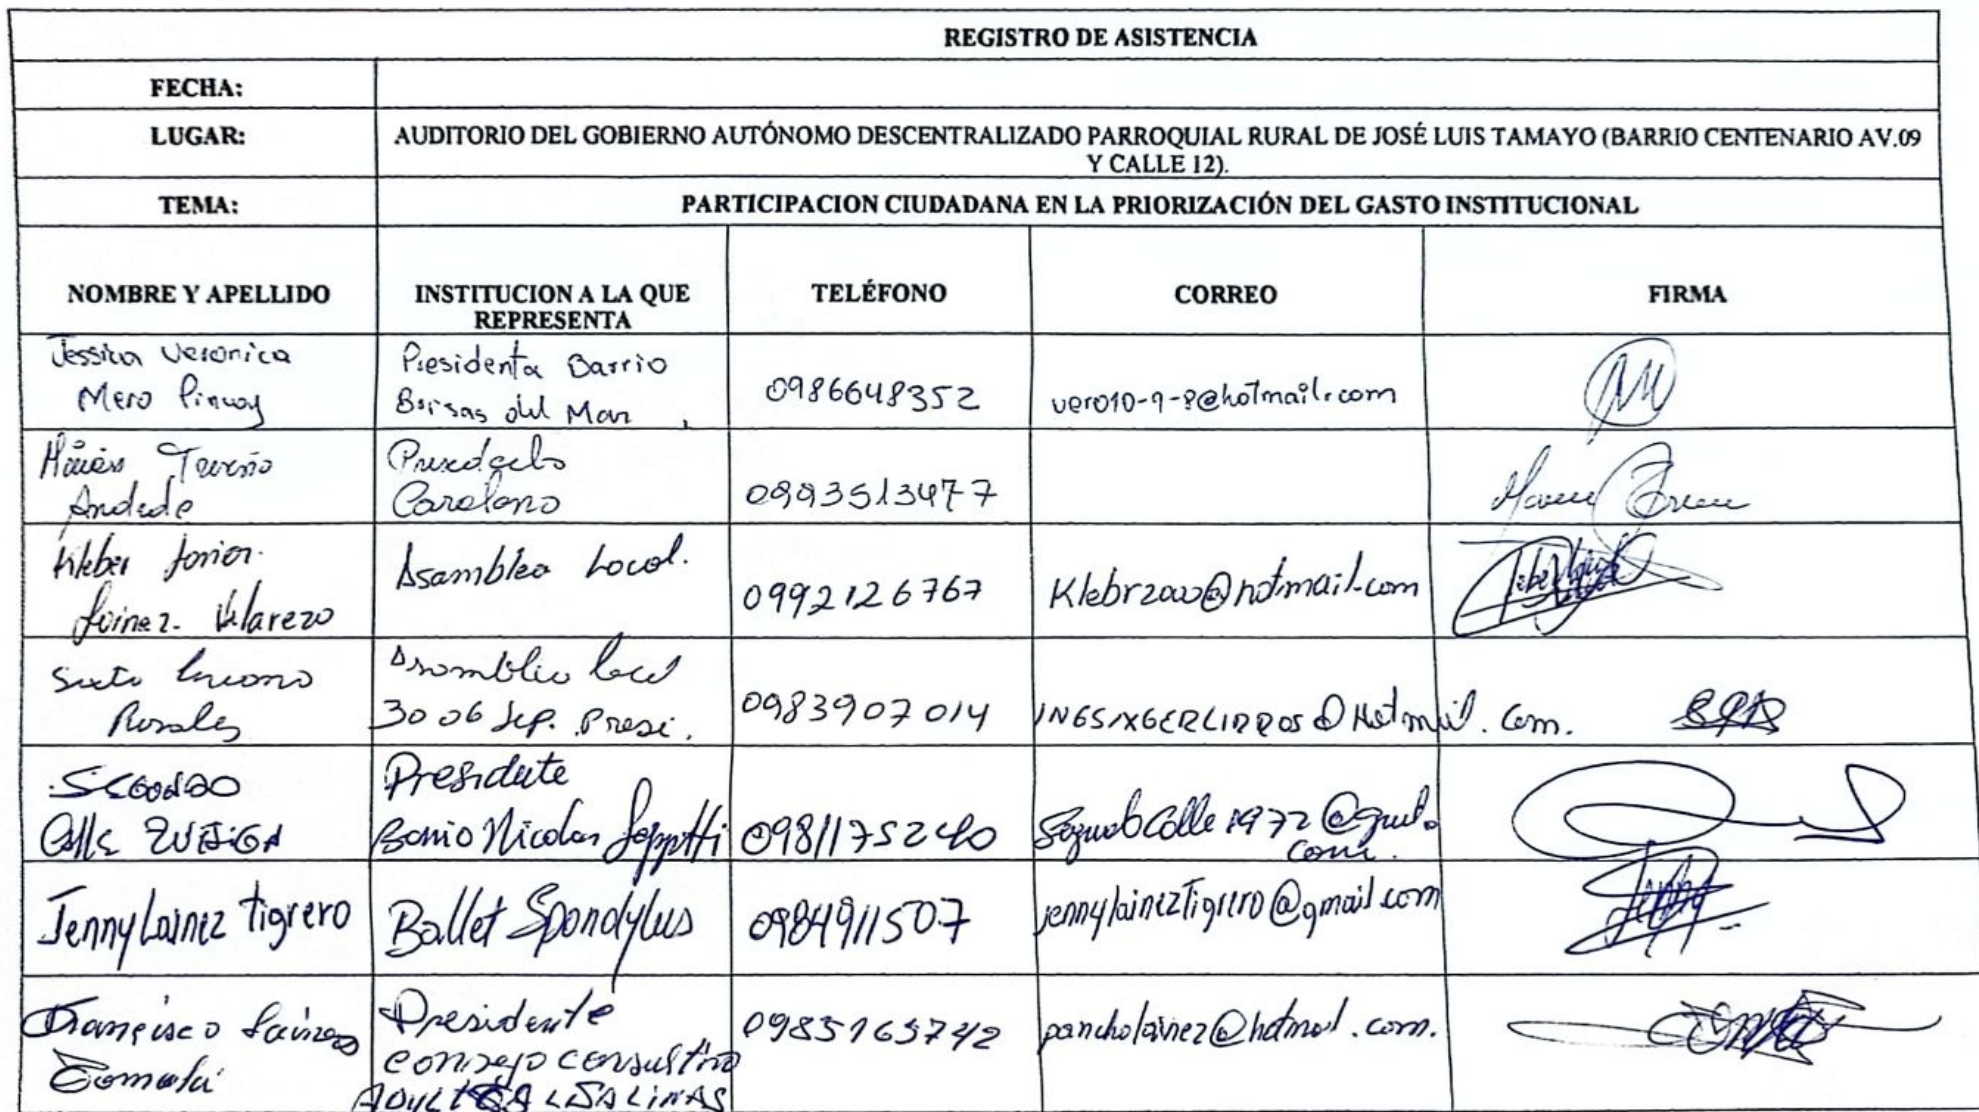 REGISTRO DE ASISTENCIA
FECHA:
LUGAR:
AUDITORIO DEL GOBIERNO AUTÓNOMO DESCENTRALIZADO PARROQUIAL RURAL DE JOSÉ LUIS TAMAYO (BARRIO CENTENARIO AV.09
Y CALLE 12).
TEMA:
PARTICIPACION CIUDADANA EN LA PRIORIZACIÓN DEL GASTO INSTITUCIONAL
NOMBRE Y APELLIDO
INSTITUCION A LA QUE
REPRESENTA
TELÉFONO
CORREO
FIRMA
Jessica Veronica
Mero Pincay
Presidenta Barrio
Brisas del Mar
0986648352
Andrade
0993513477
Kleber Javier
Lainez
Asamblea Local.
0992126767
Sixto
Rosales
Asamblea local
30 06 Sep. Presi.
0983907014
Segundo
Calle ZUÑIGA
Presidente
Barrio Nicolas
0981175240
Jenny Lainez Tigrero
Ballet Spondylus
0984911507
jennylaineztigrero@gmail.com
Francisco Lainez
Tomalá
Presidente
consejo consultivo
SALINAS
0985165742
pancholainez@hotmail.com.